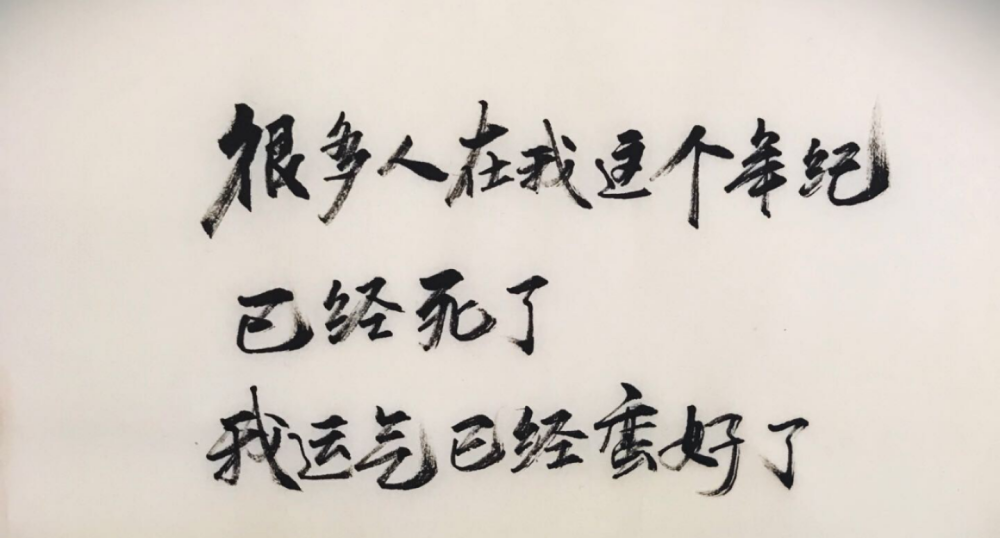 很多人在我这个年纪
已经死了
我运气已经蛮好了